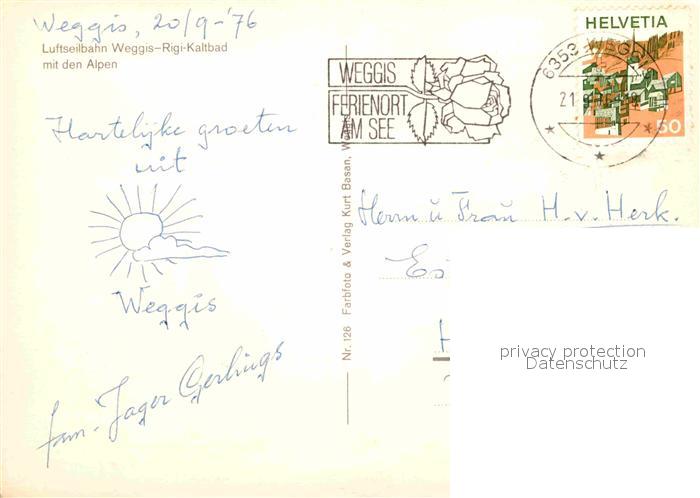 Weggis, 20/9-'76
Luftseilbahn Weggis-Rigi-Kaltbad
mit den Alpen
Hartelijke groeten
uit
Weggis
fam. Jager Gerlings
Nr. 126 Farbfoto & Verlag Kurt Basan, W
WEGGIS
FERIENORT
AM SEE
6353 WEGGIS
21.
HELVETIA
50
Herrn u Frau H. v. Herk.
Es
H
privacy protection
Datenschutz